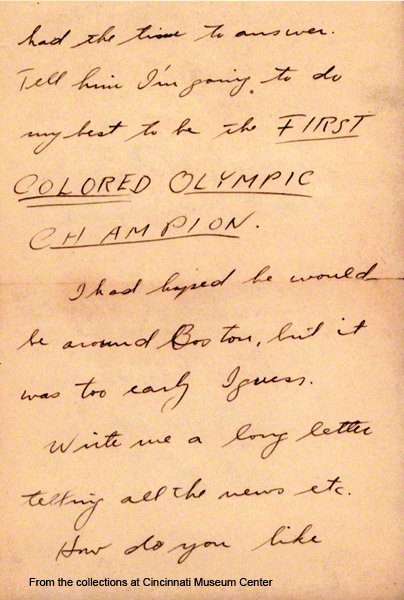 had the time to answer.
Tell him I'm going to do
my best to be the FIRST
COLORED OLYMPIC
CHAMPION.
I had hoped he would
be around Boston, but it
was too early I guess.
Write me a long letter
telling all the news etc.
How do you like
From the collections at Cincinnati Museum Center